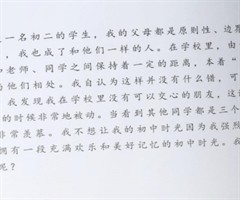 一名初二的学生,我的父母都是原则性、边界
,我也成了和他们一样的人。在学校里,由
和老师、同学之间保持着一定的距离,本着"
与他们相处。我自认为这样并没有什么错,可
我发现我在学校里没有可以交心的朋友,这
的时候非常地被动。当看到其他同学都是三个
非常羡慕。我不想让我的初中时光因为我强烈
拥有一段充满欢乐和美好记忆的初中时光。我
呢?